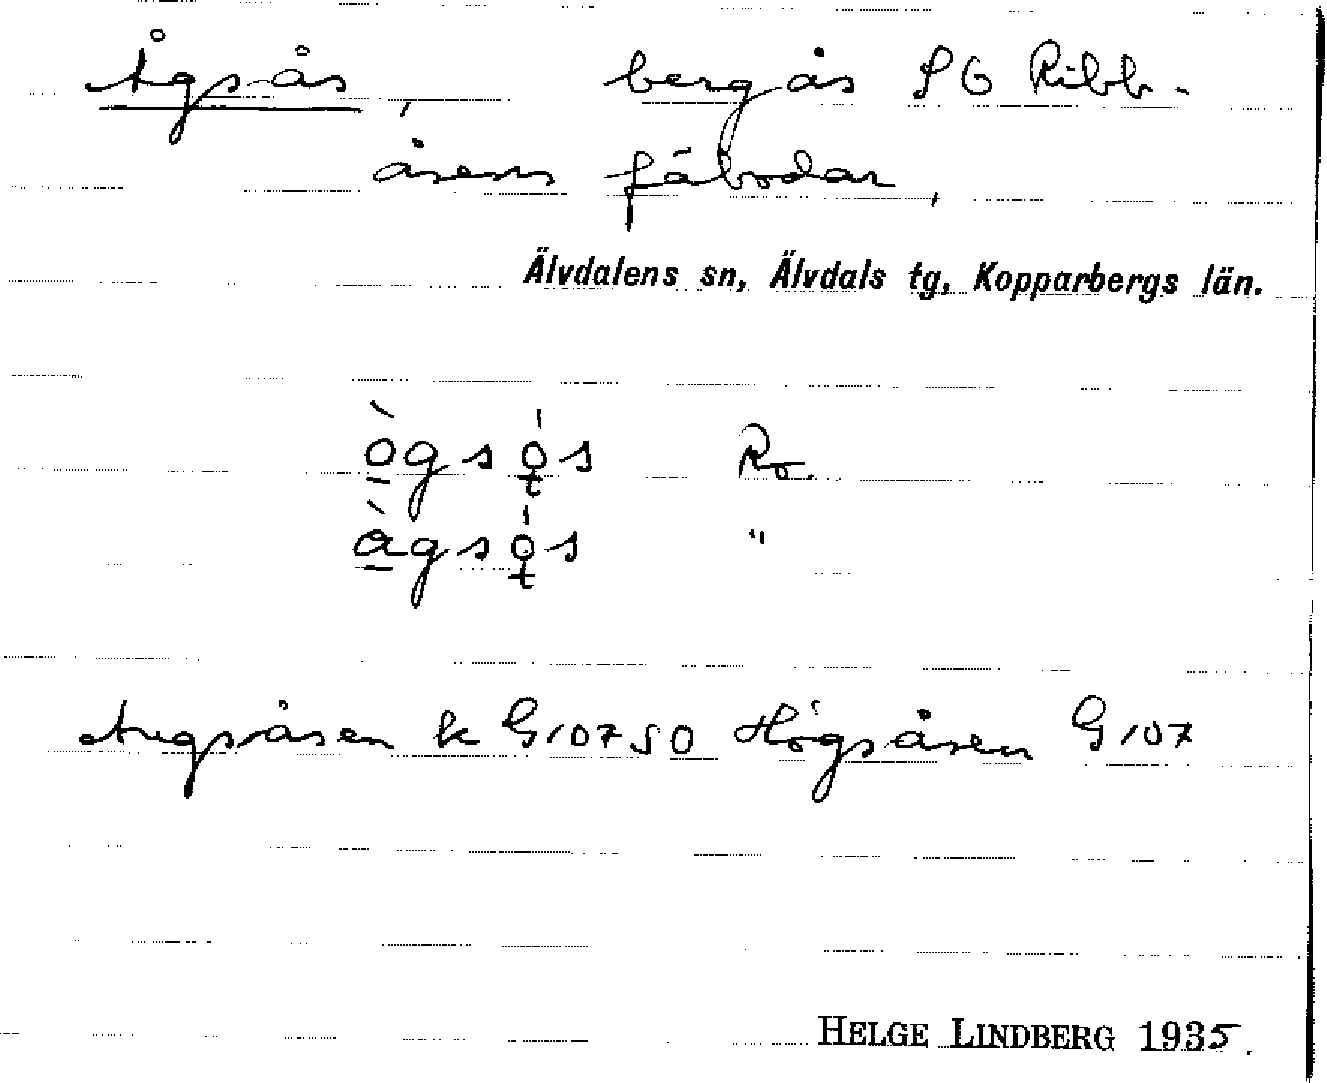 Ågs-ås, bergås SO Ribb-
åsens fäbodar,
Älvdalens sn, Älvdals tg, Kopparbergs län.
ò̱gsǫ́s Ro.
à̱gsǫ́s "
Augsåsen k G 107 SO Högsåsen G 107
HELGE LINDBERG 1935.